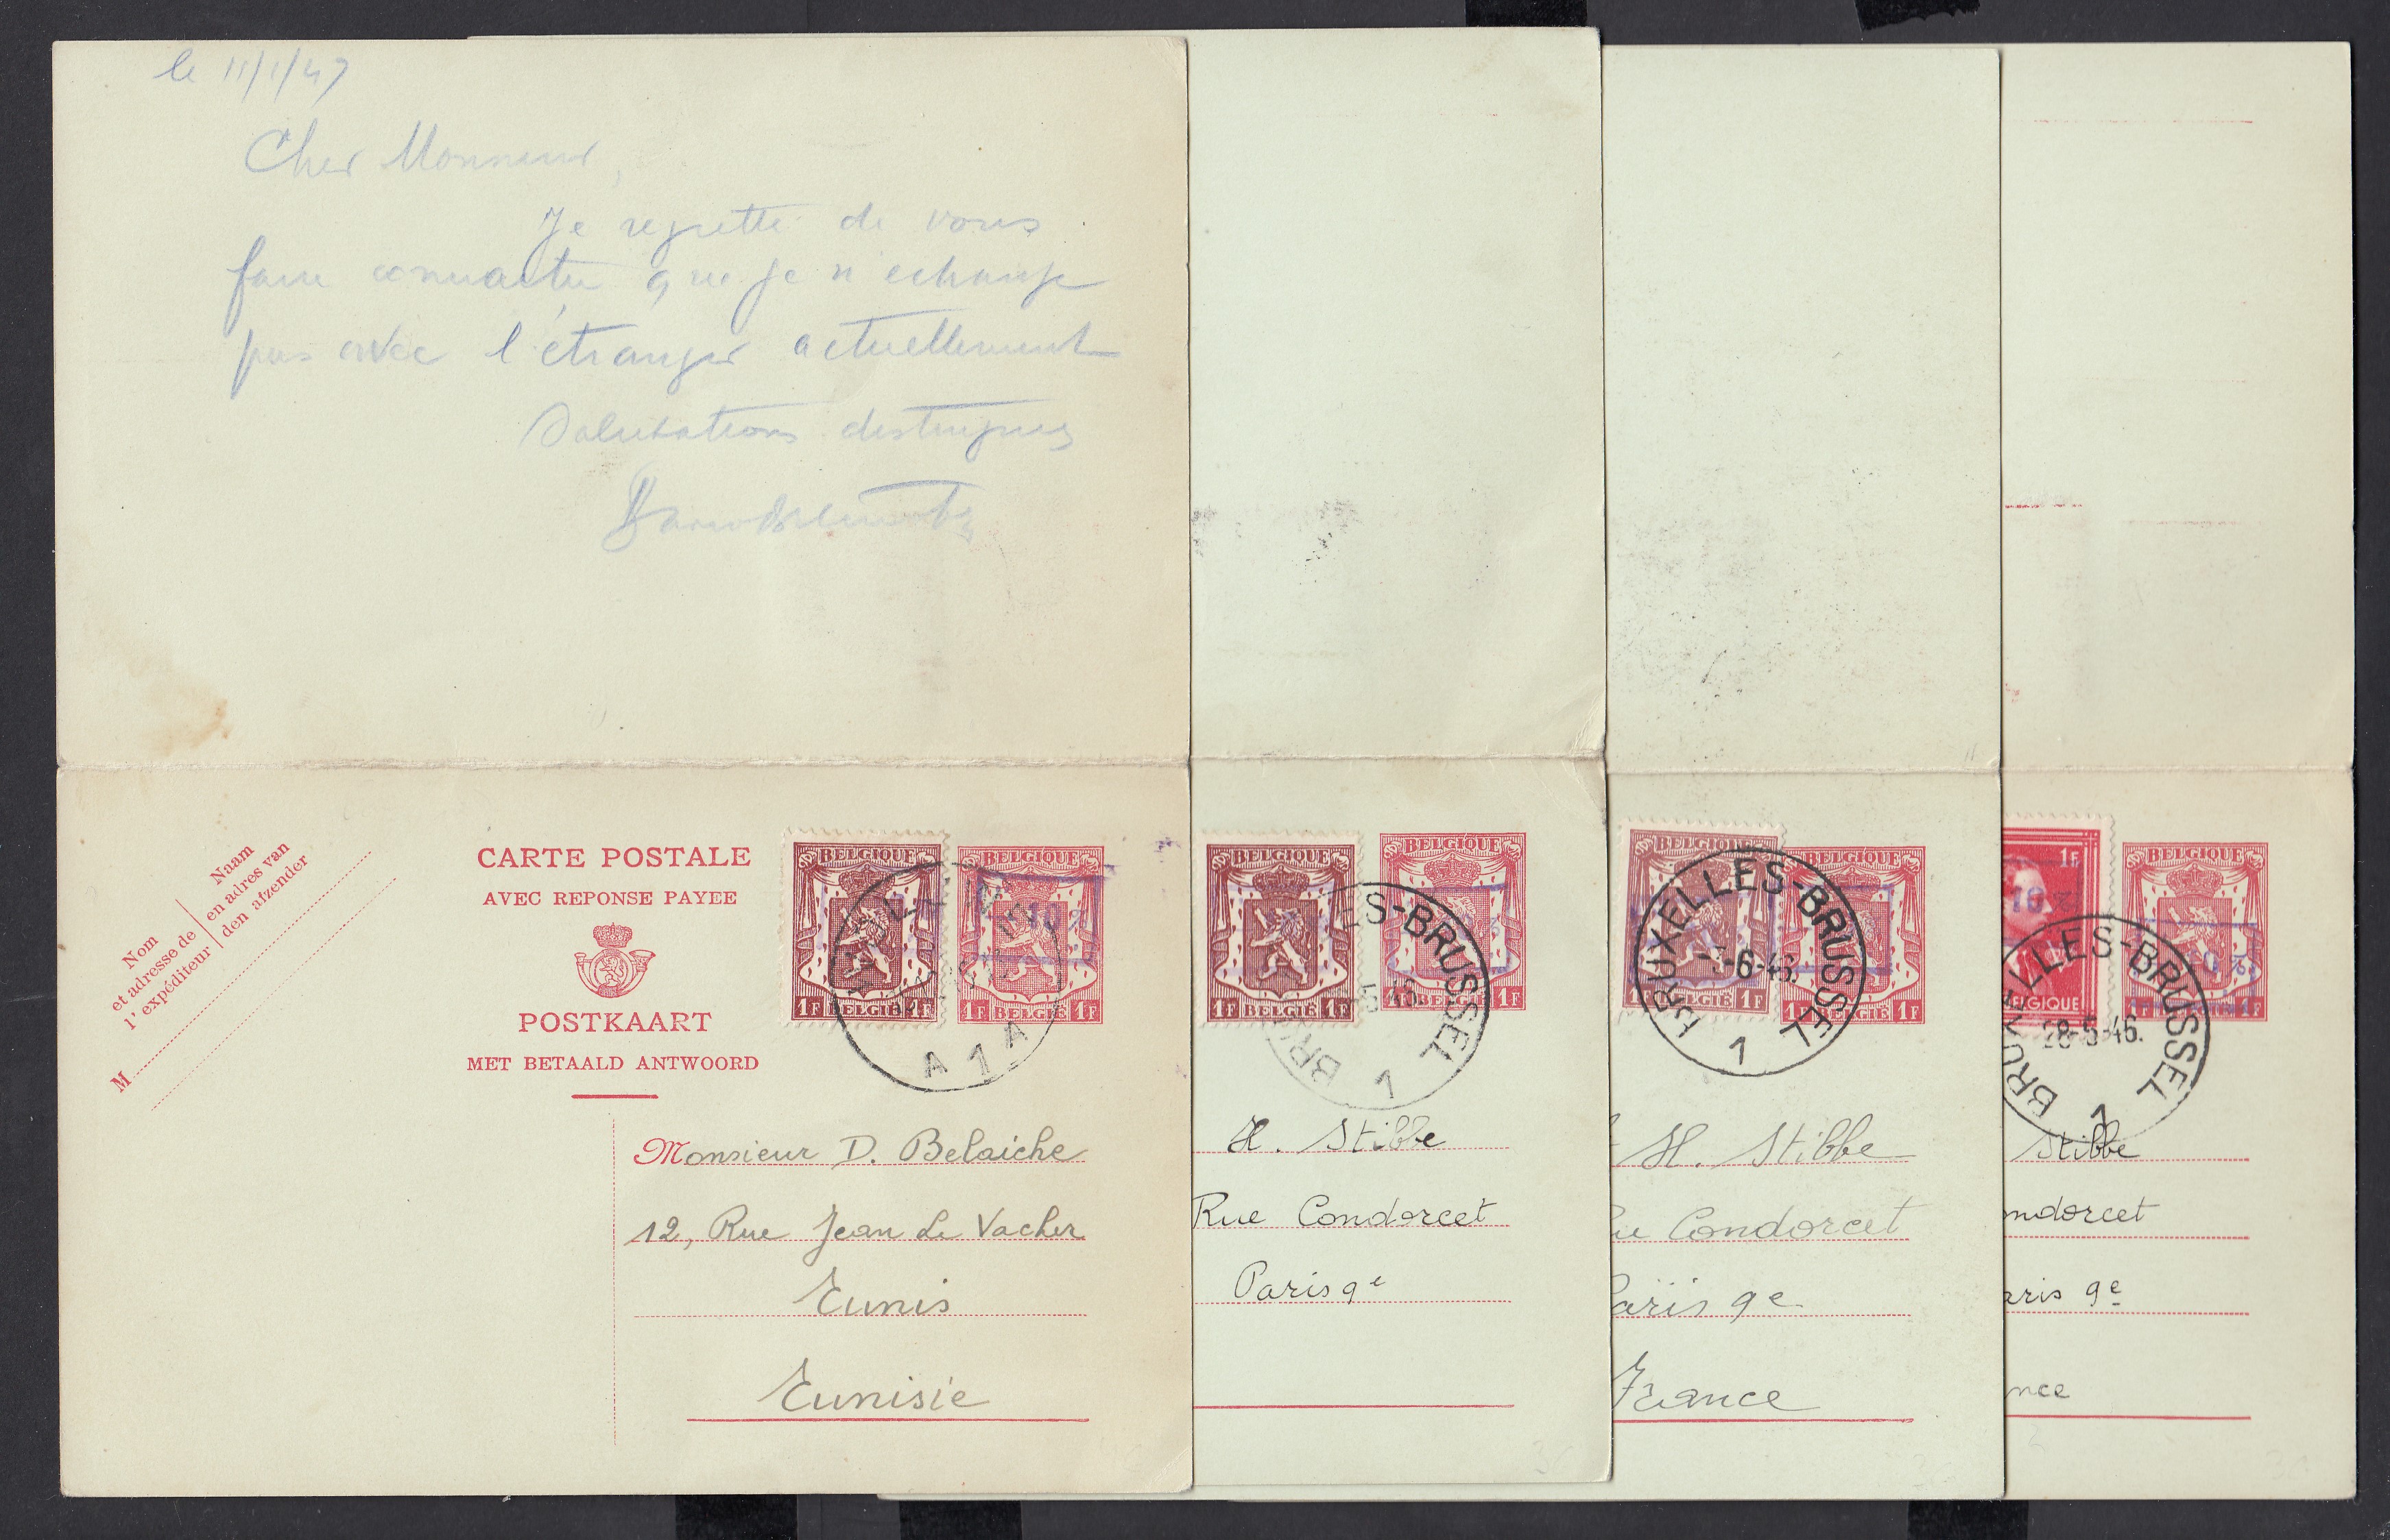 le 11/1/47
Cher Monsieur,
Je regrette de vous
faire connaitre que je n'echange
pas avec l'étranger actuellement
Salutations distingues
Nom
et adresse de
l'expéditeur
Naam
en adres van
den afzender
M
CARTE POSTALE
AVEC REPONSE PAYEE
POSTKAART
MET BETAALD ANTWOORD
BELGIQUE
1F BELGIË 1F
BELGIQUE
1F BELGIË 1F
-10%
A 1 A
Monsieur D. Belaiche
12, Rue Jean Le Vacher
Tunis
Tunisie
BELGIQUE
1F BELGIË 1F
BELGIQUE
BELGIË 1F
ES-BRUSSEL
BRU
1
H. Stibbe
Rue Condorcet
Paris 9e
BELGIQUE
1 BELGIË 1F
BELGIQUE
1F BELGIË 1F
BRUXELLES-BRUSSEL
-6-46.
1
H. Stibbe
ue Condorcet
Paris 9e
France
1F
-10%
ELGIQUE
BELGIQUE
1F
BRUXELLES-BRUSSEL
28-5-46.
1
Stibbe
ondorcet
aris 9e
nce